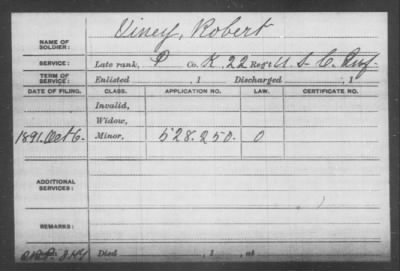 Viney, Robert
NAME OF SOLDIER:
SERVICE: Late rank, P Co. K, 22 Reg't U. S. C. Inf.
TERM OF SERVICE: Enlisted , 1 Discharged , 1
DATE OF FILING. CLASS. APPLICATION NO. LAW. CERTIFICATE NO.
Invalid,
Widow,
1891, Oct 6. Minor, 528.250. O
ADDITIONAL SERVICES:
REMARKS:
Died , 1 , at